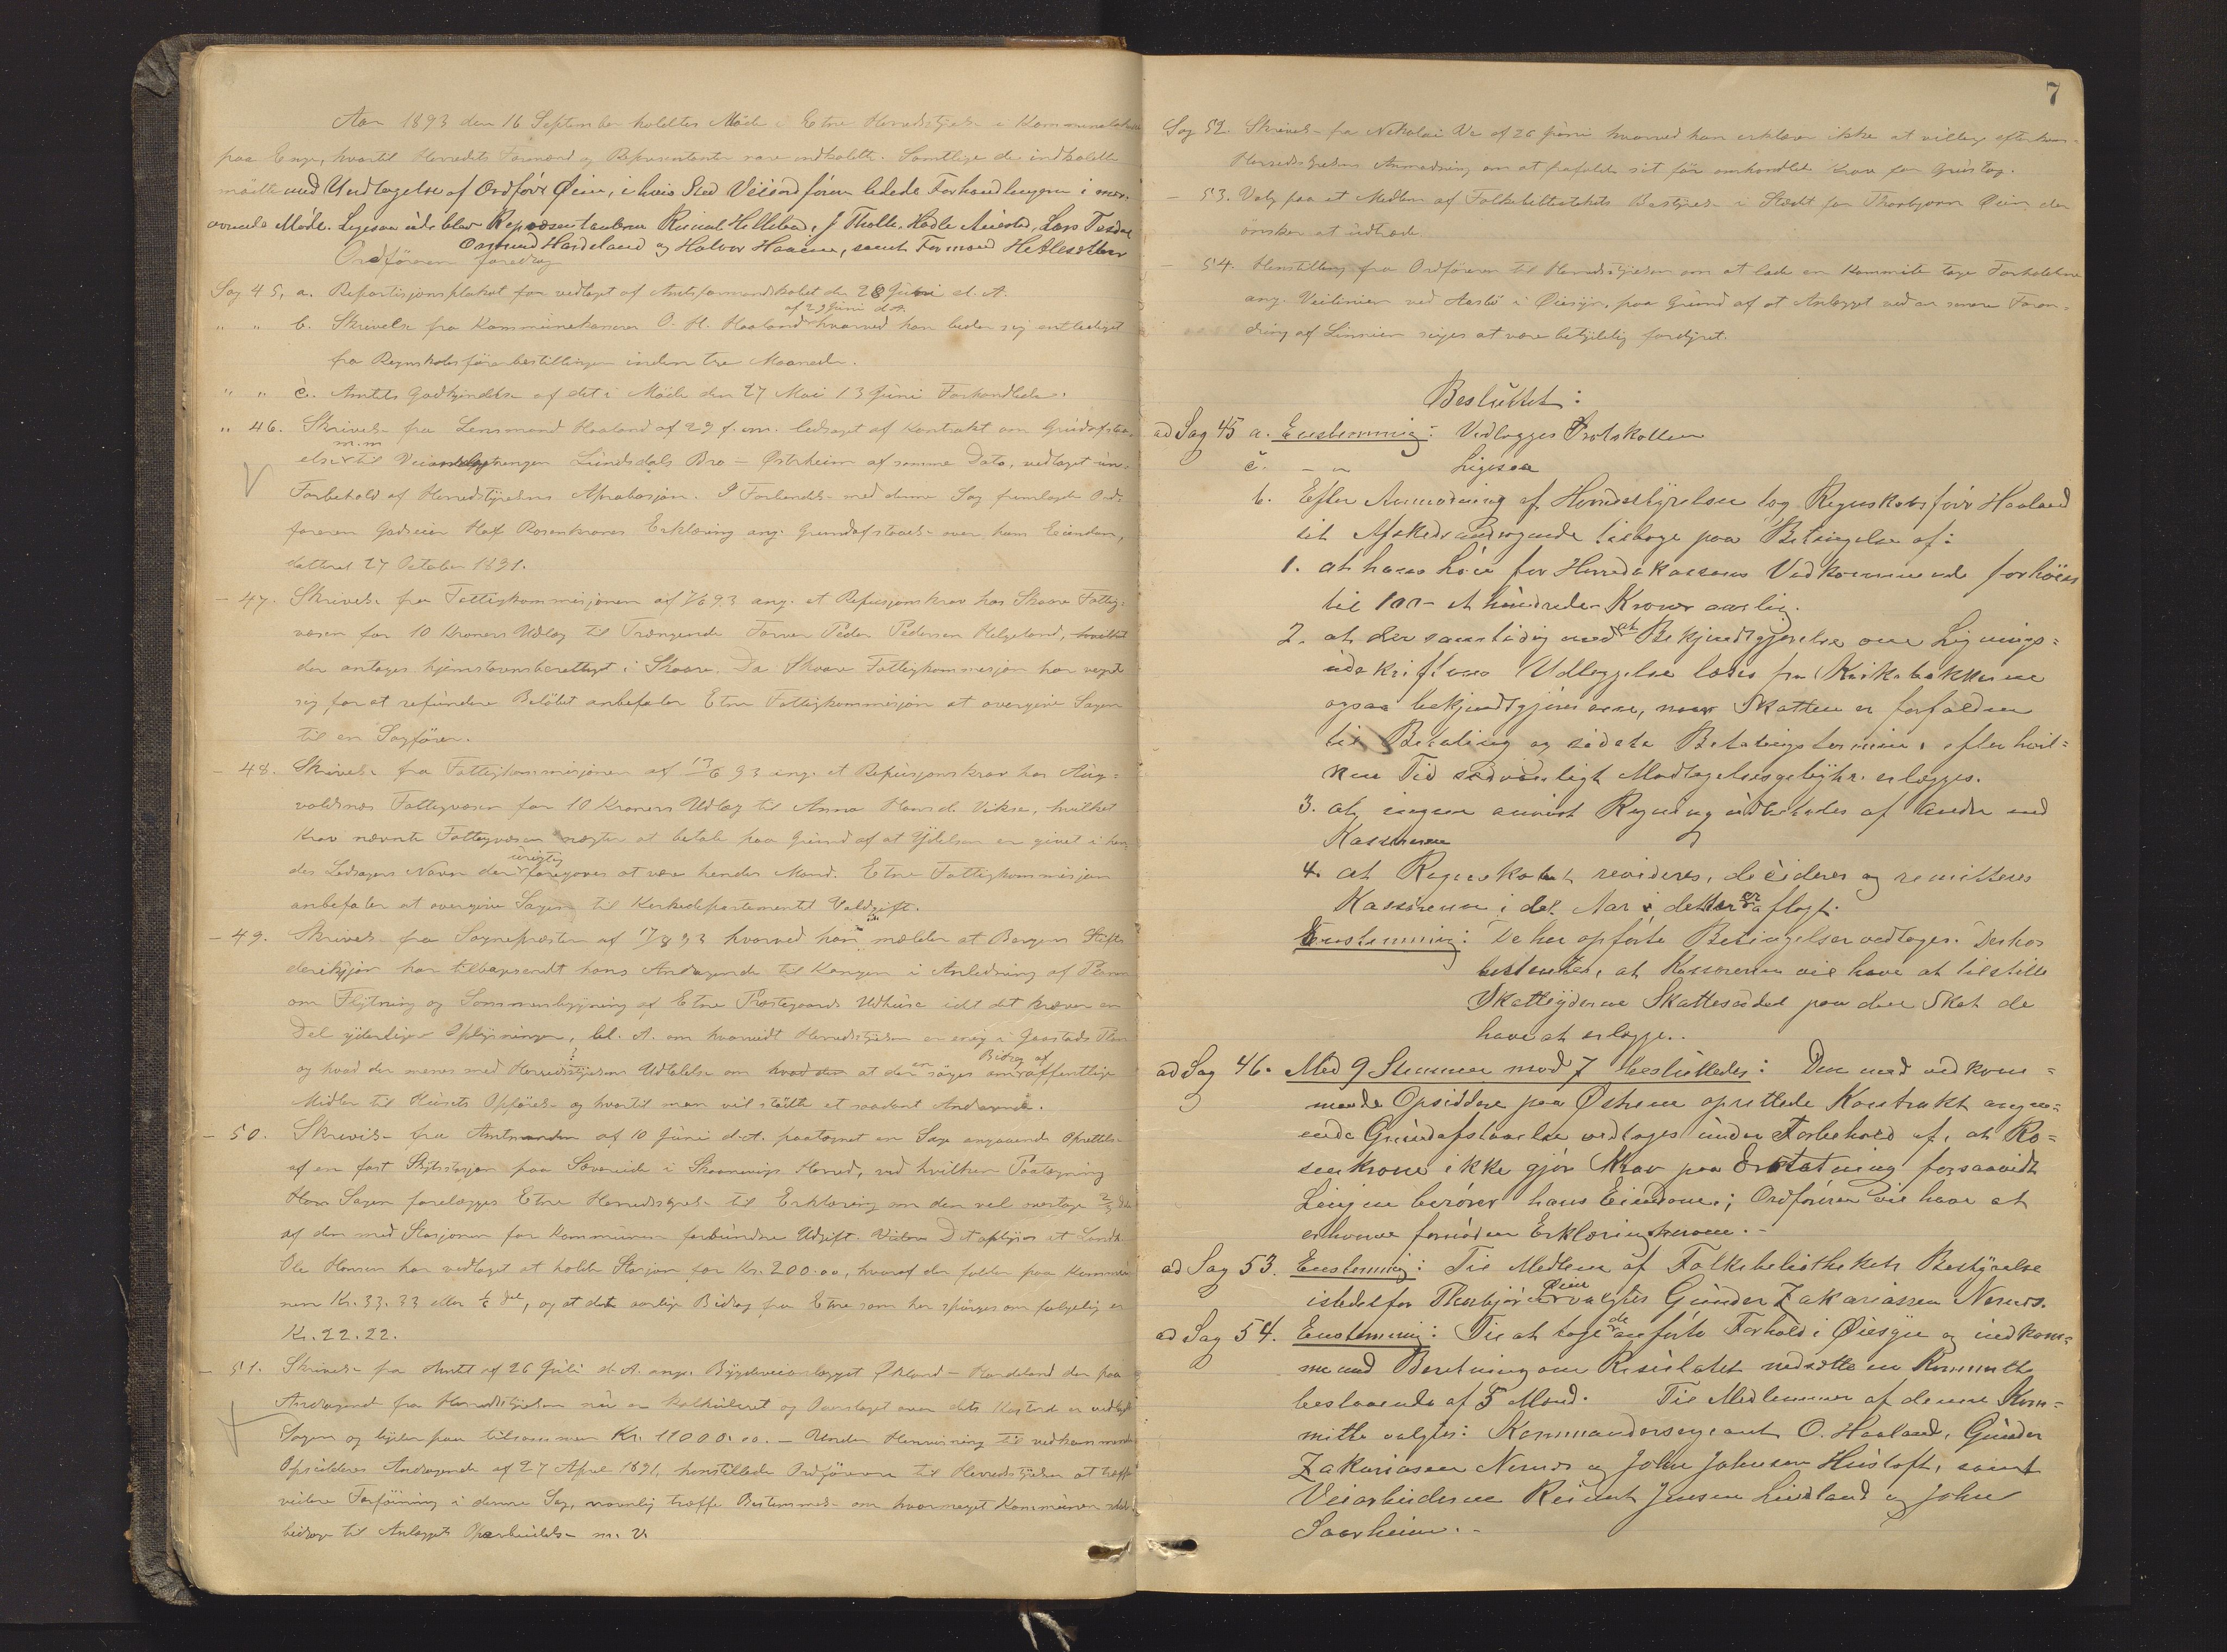 Aar 1893 den 16 September holdtes Møde i Etne Herredsstyrelse i Kommunelokalet
paa Enge, hvortil Herredets Formænd og Representanter vare indkaldte. Samtlige de indkaldte
mødte med Undtagelse af Ordfører Øien, i hvis Sted Viceordføren ledede Forhandlingerne i nær-
værende Møde. Ligesaa udeblev Repræsentanterne Reinert Hellebad, J Tholle, Lars Tesdal
Osmund Handeland og Halvor Haaim, samt Formand
Ordføreren foredrog
Sag 45, a. Repartisjonsplakat for vedtaget af Amtsformandskabet den 28 Juni d. A.
" " b. Skrivelse fra Kommunekasserer O. H. Haaland af 29 Juni d. A. hvorved han beder sig entlediget
fra Regnskabsførerbestillingen inden tre Maaneder.
" " c. Amtets Godkjendelse af det i Møde den 27 Mai 13 Juni Forhandlede.
" 46. Skrivelse fra Lensmand Haaland af 29 f. m. ledsaget af Kontrakt om Grundafstaa-
else m.m til Lundsdals Bro - Østrheim af samme Dato, vedtaget un-
Forbehold af Herredstyrelsens Aprobasjon. I Forbindelse med denne Sag fremlagde Ord-
føreren Godseier Hof Rosenkrones Erklæring ang. Grundafstaaelse over hans Eiendom,
datteret 27 October 1891.
- 47. Skrivelse fra Fattigkommisjonen af 7/6 93 ang. et Refusjonskrav hos Skaare Fattig-
væsen for 10 Kroners Udlæg til Trængende Farver Peder Pedersen Helgeland,
der antages hjemstavnsberettiget i Skaare. Da Skaare Fattigkommisjon har vegret
sig for at refundere Beløbet anbefaler Etne Fattigkommisjon at overgive Sagen
til en Sagfører.
- 48. Skrivelse fra Fattigkommisjonen af 17/6 93 ang. et Refusjonskrav hos Aug-
valdsnes Fattigvæsen for 10 Kroners Udlæg til Anna Hansd. Vikse, hvilket
Krav nævnte Fattigvæsen nægter at betale paa Grund af at Ydelsen er givet i hen-
des Ledsagers Navn der urigtig foregaves at være hendes Mand. Etne Fattigkommisjon
anbefaler at overgive Sagen til Kirkedepartementet Voldgift.
- 49. Skrivelse fra Sognepresten af 17/8 93 hvorved han mælder at Bergens Stifts
direksjon har tilbagesendt hans Andragende til Kongen i Anledning af Planen
om Flytning og Sammenbygning af Etne Præstegaards Udhuse idet det kræver en
Del yderligere Oplysninger, bl. A. om hvorvidt Herredstyrelsen er enig i Plan
og hvad der menes med Herredsstyrelsens Udtalelse om at der søges om Bidrag af offentlige
Midler til Husets Opførelse og hvortil man vil stille et saadant Andragende.
- 50. Skrivelse fra Amtmanden af 10 Juni d. A. paategnet en Sag angaaende Oprettelse
af en fast Skydsstasjon paa Sævereide i Skaanevigs Herred, ved hvilken Paategning
Han Sagen forelægges Etne Herredsstyrelse til Erklæring om den vil overtage 2/3 Dele
af den med Stasjonen for Kommunen forbundne Udgift. Videre Det oplyses at
Ole Hansen har vedtaget at holde Stasjon for Kr. 200.00, hvoraf der falder paa Kommu-
nen Kr. 33.33 eller 1/6 Del, og at det aarlige Bidrag fra Etne som her spørges om følgelig er
Kr. 22.22.
- 51. Skrivelse fra Amtet af 26 Juli d. A. ang. Bygdeveianlægget Økland - Handeland der paa
Andragende fra Herredsstyrelsen nu er kalkuleret og Overslaget over dets Kostende er vedlagt
Sagen og lyder paa tilsammen Kr. 11000.00. - Under Henvisning til vedkommende
Opsidderes Andragende af 27 April 1891, henstillede Ordføreren til Herredsstyrelsen at træffe
videre Forføining i denne Sag, navnlig træffe Bestemmelse om hvormeget Kommunen skal
bidrage til Anlæggets Oparbeidelse m. v.
7
Sag 52. Skrivelse fra Nikolai Vee af 26 Juni hvorved han erklærer ikke at ville efterkom-
Herredsstyrelsens Anmodning om at frafalde sit før omhandlede Krav for Grustag.
- 53. Valg paa et Medlem af Folkebibliothekets Bestyrelse i Stedet for Thorbjørn Øien der
ønsker at udtræde.
- 54. Henstilling fra Ordføreren til Herredsstyrelsen om at lade en Kommite tage Forholdene
ang. Veilinien ved i Øiesyn, paa Grund af at Anlægget ved en senere Foran-
dring af Linnien siges at være betydelig fordyret.
Besluttet:
ad Sag 45 a. Enstemmig: Vedlægges Protokollen
c. - " Ligesaa
b. Efter Anmodning af Herredsstyrelsen tog Regnskabsfører Haaland
sit Afskedsandragende tilbage paa Betingelse af:
1. at hans Løn for Herredskassens Vedkommende forhøies
til 100- et hundrede- Kroner aarlig.
2. at der samtidig med at Bekjendtgjørelse om Lignings-
udskriftens Udlæggelse læses fra Kirkebakkerne
ogsaa bekjendtgjøres, naar Skatten er forfalden
til Betaling og sidste Betalingstermin, efter hvil-
ken Tid sedvanligt Modtagelsesgebyhr erlægges.
3. at ingen anvist Regning udbetales af Andre end
Kassereren
4. at Regnskabet revideres, decideres og remitteres
Kassereren i det Aar i det er aflagt.
Enstemmig: De her opførte Betingelser vedtages. Derhos
besluttes, at Kassereren vil have at tilstille
Skatteyderne Skatteseddel paa den Skat de
have at erlægge..
ad Sag 46. Med 9 Stemmer mod 7 besluttedes: Den med vedkom-
mende Opsiddere paa Østrem oprettede Kontrakt angaa-
ende Grundafstaaelse vedtages under Forbehold af, at Ro-
senkrone ikke gjør Krav paa Erstatning forsaavidt
Linjen berører hans Eiendom; Ordføreren vil have at
erhverve fornøden Erklæring herom. -
ad Sag 53. Enstemmig: Til Medlem af Folkebibliothekets Bestyrelse
istedetfor Thorbjørn Øien valgtes Gunder Zakariassen Nernes.
ad Sag 54. Enstemmig: Til at tage de anførte Forhold i Øiesyn og indkom-
me med Beretning om Resultatet nedsættes en Kommitte
bestaaende af 5 Mænd. Til Medlemmer af denne Kom-
mitte valgtes: Kommandersergeant O. Haaland, Gunder
Zakariassen Nernes og John Johnsen Hustoft, samt
Veiarbeiderne Reinert Jensen Lindland og John
Saarheim. -